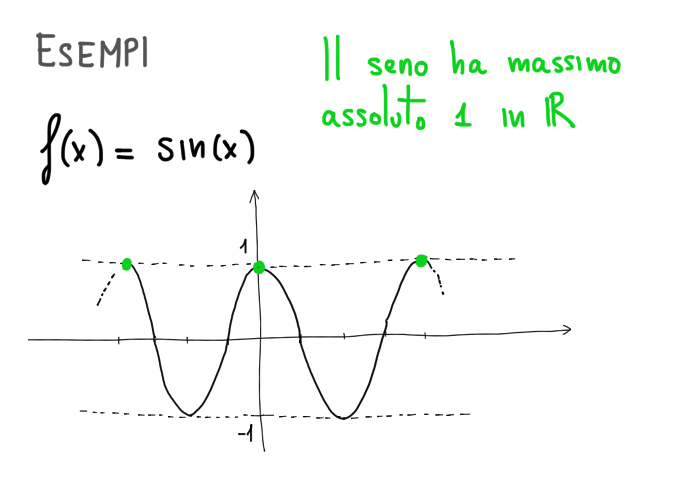 ESEMPI
Il seno ha massimo
assoluto 1 in ℝ
f(x) = sin(x)
1
-1